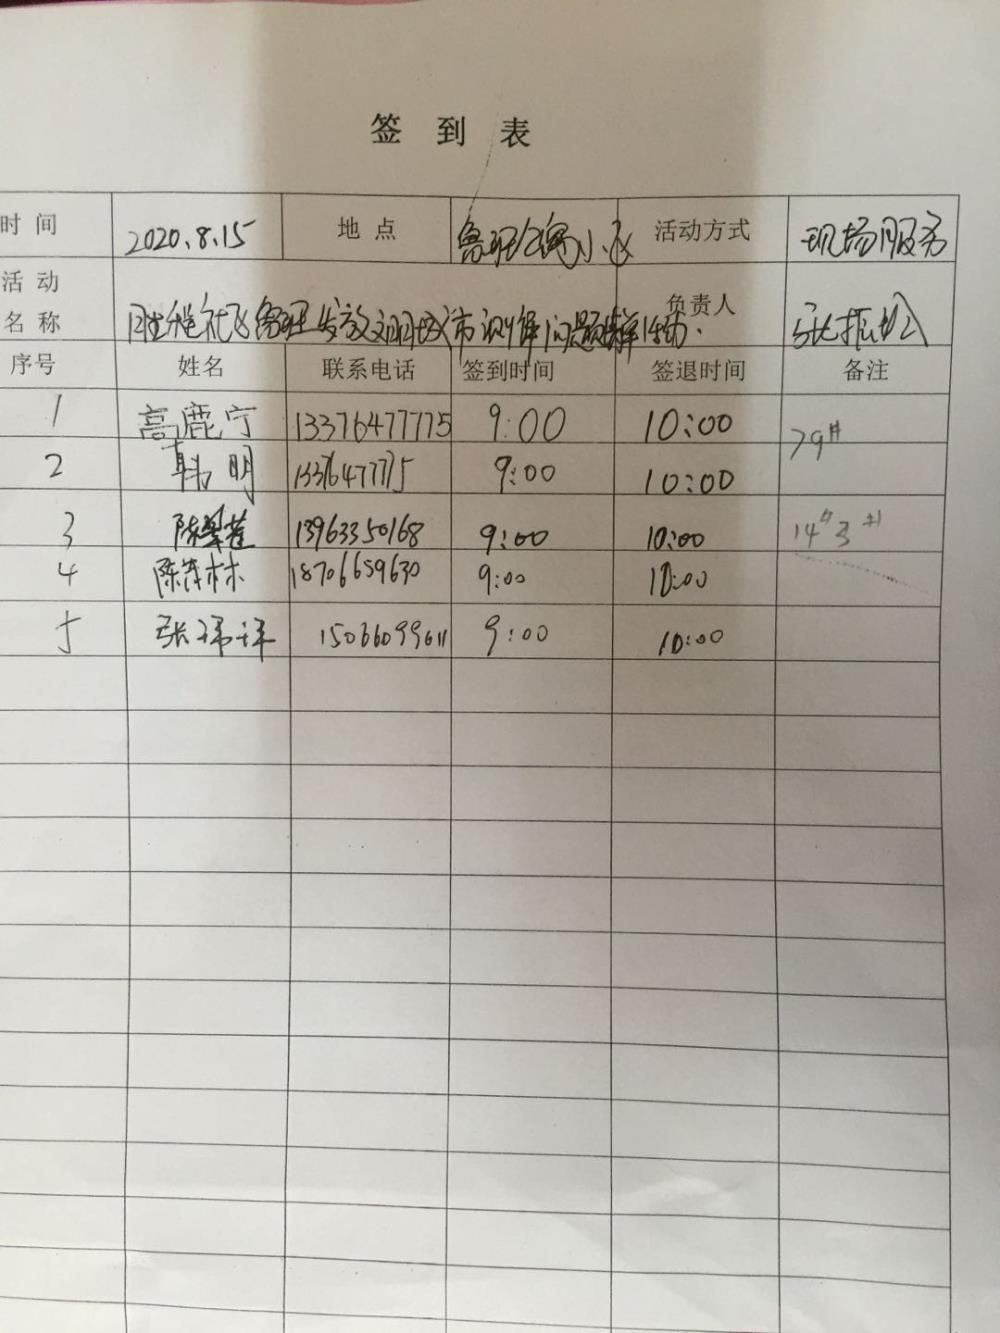 签 到 表
时 间 2020.8.15 地 点 鲁班公寓小区 活动方式 现场服务
活 动
名 称 社区鲁班 发放文明城市 问题 活动. 负责人 张振
序号 姓名 联系电话 签到时间 签退时间 备注
1 高鹿宁 13376477775 9:00 10:00 79#
2 韩明 13376477775 9:00 10:00
3 陈 13963350168 9:00 10:00 14#3#1
4 陈 林 18706659630 9:00 10:00
5 张 15066099611 9:00 10:00